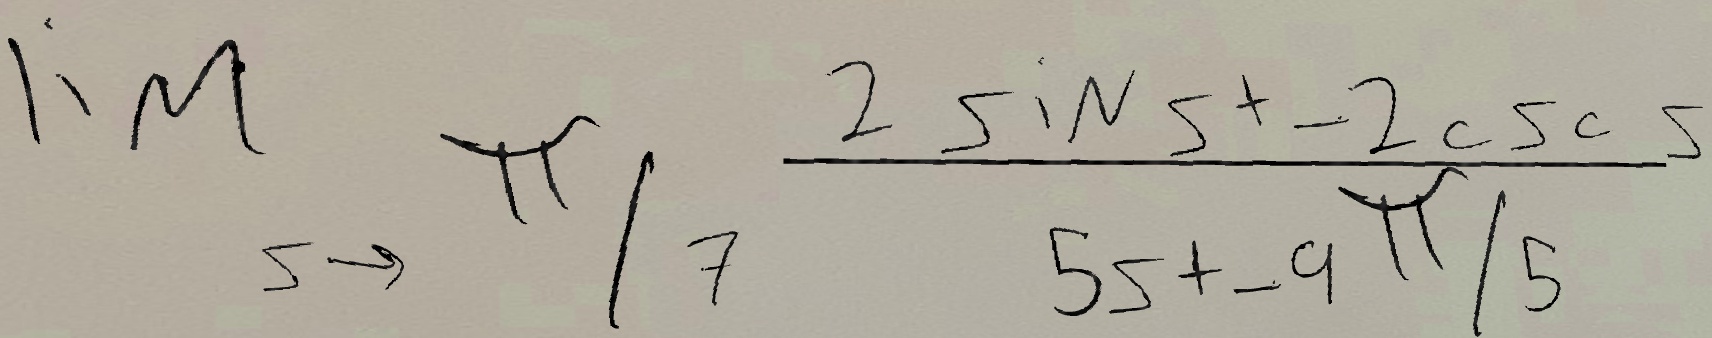 lim s→π/7 (2 sin s + -2 csc s)/(5s + -9π/5)